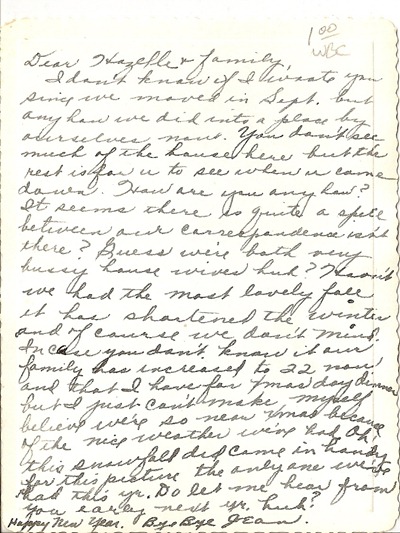 1.00
WBC
Dear Hazelle & family,
I don't know if I wrote you
sinc we moved in Sept. but
any how we did into a place by
ourselves now. You don't see
much of the house here but the
rest is for u to see when u come
down. How are you any how?
It seems there is quite a spell
between our correspondence isn't
there? Guess we're both very
bussy house wives huh? Haven't
we had the most lovely fall
it has shortened the winter
and of course we don't mind.
Incase you don't know it our
family has increased to 22 now
and that I have for Xmas day dinner
but I just can't make myself
believe we're so near Xmas because
of the nice weather we've had. Oh
this snowfall did come in handy
for this picture the only one we've
had this yr. Do let me hear from
you early next yr. huh?
Happy New Year. Bye Bye Jean.